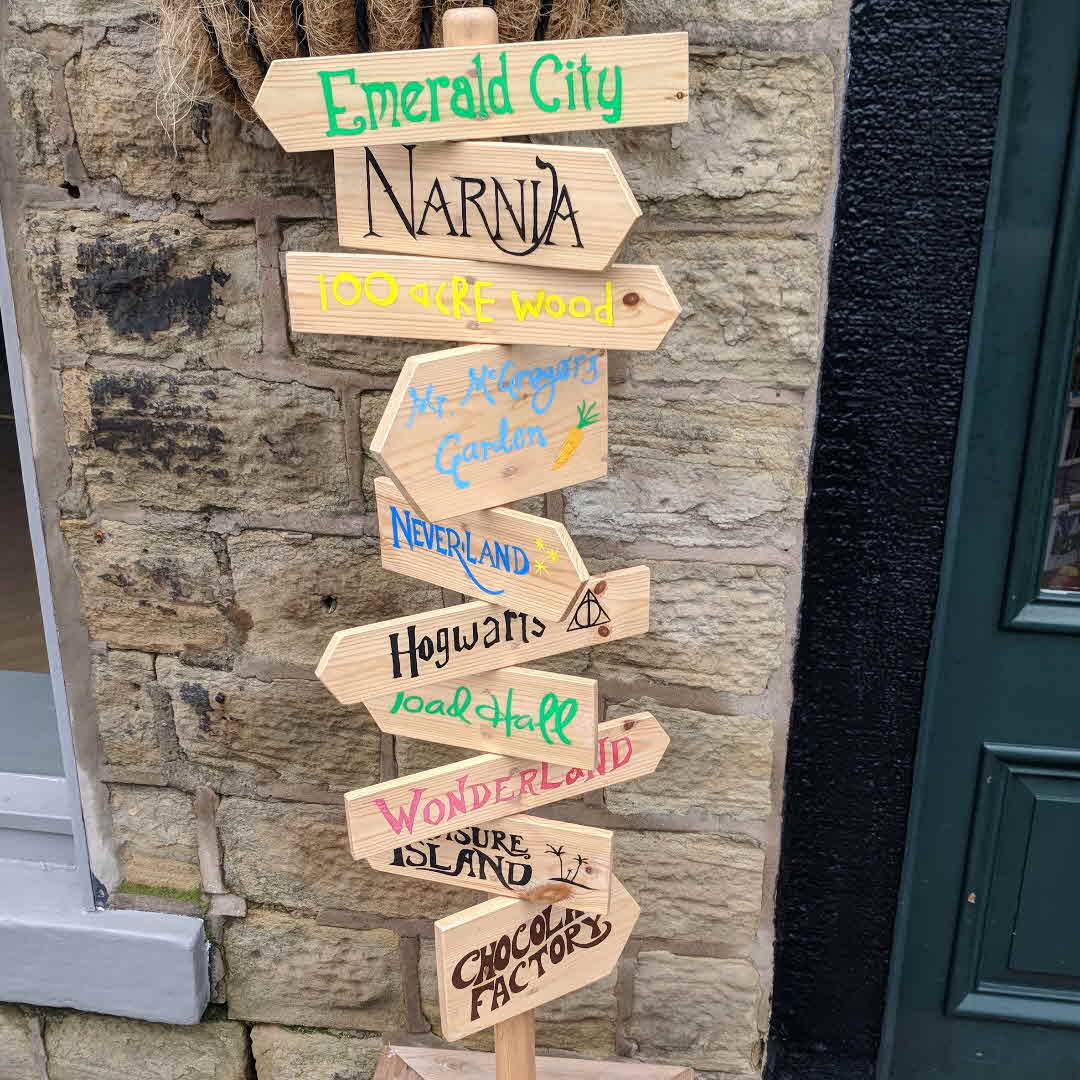 Emerald City
NARNIA
100 acRE wood
Mr. McGregor's
Garden
NEVERLAND
Hogwarts
Toad Hall
WONDERLaND
ASURE
ISLAND
CHOCOL
FACTORY